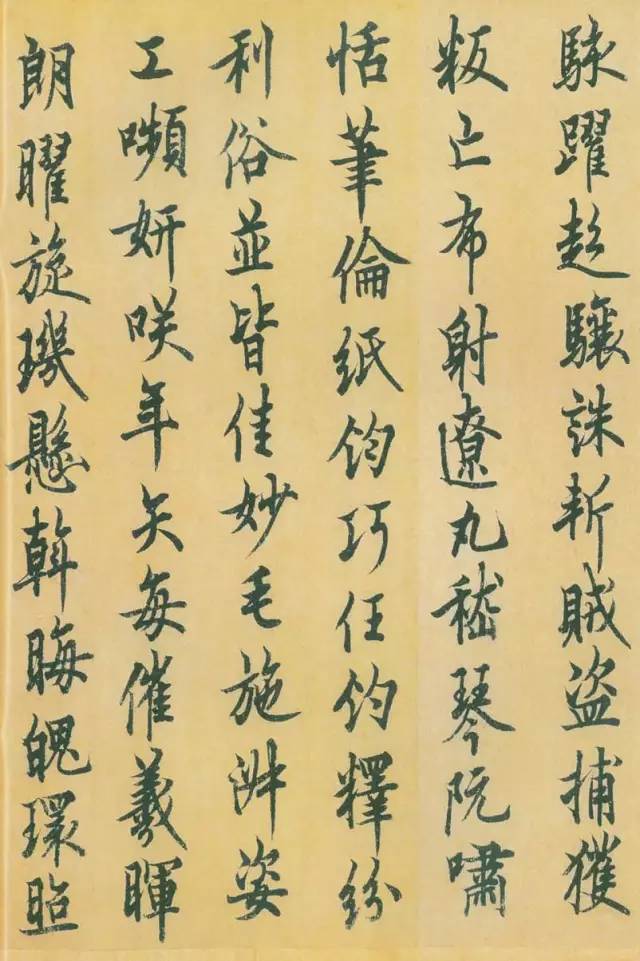 駭躍超驤誅斬賊盜捕獲
叛亡布射遼丸嵇琴阮嘯
恬筆倫紙鈞巧任釣釋紛
利俗並皆佳妙毛施淑姿
工嚬妍咲年矢每催羲暉
朗曜旋璣懸斡晦魄環照